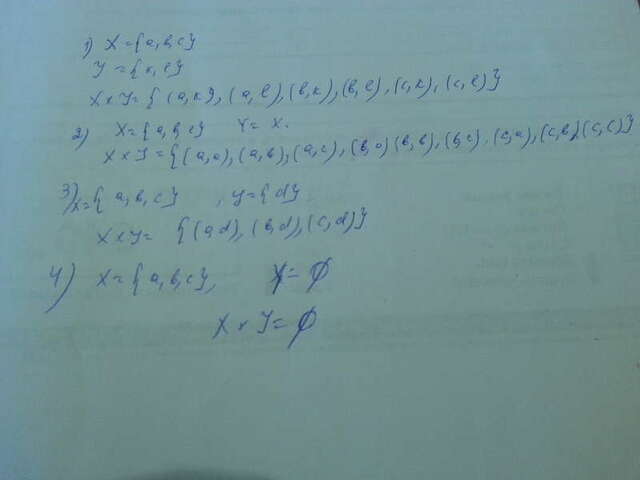 1) X = {a, b, c}
Y = {k, l}
X × Y = { (a, k), (a, l), (b, k), (b, l), (c, k), (c, l)}
2) X = {a, b, c} Y = X.
X × Y = {(a, a), (a, b), (a, c), (b, a) (b, b), (b, c), (c, a), (c, b) (c, c)}
3) X = { a, b, c} , Y = {d}
X × Y = {(a, d), (b, d), (c, d)}
4) X = {a, b, c}, Y = ∅
X × Y = ∅